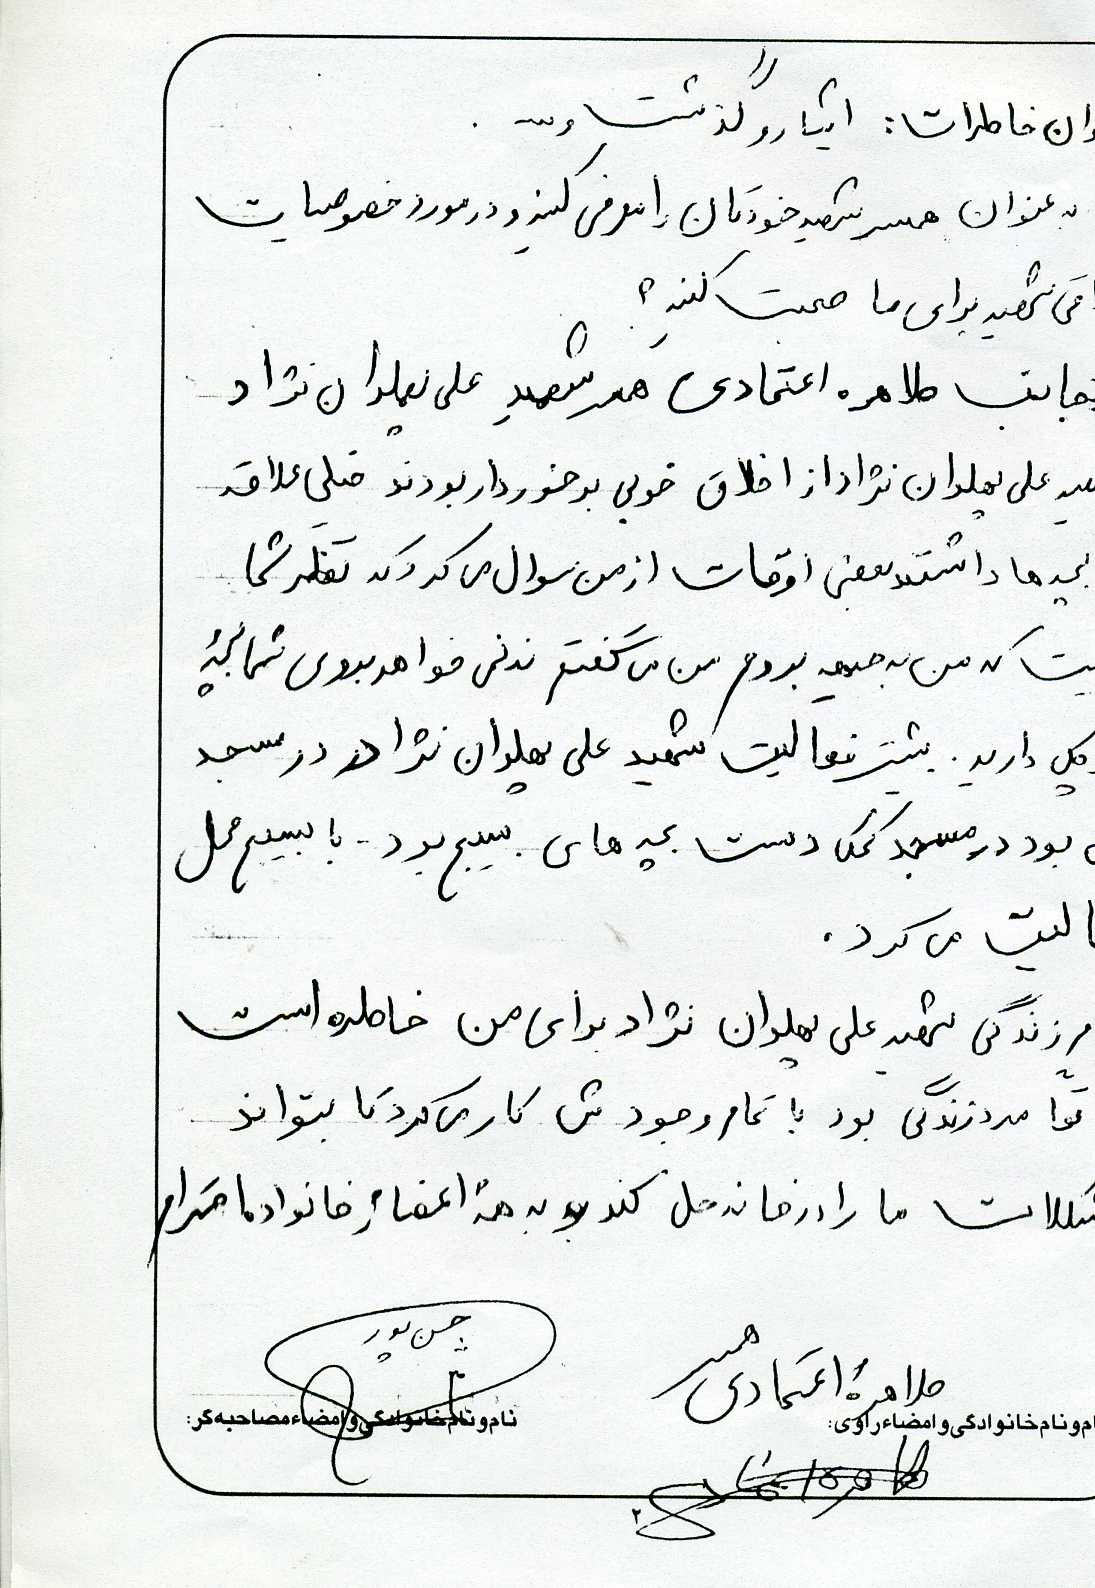 وان خاطرات: ایثار و گذشت و ...
به عنوان همسر شهید خودتان را معرفی کنید و در مورد خصوصیات
شهید برای ما صحبت کنید؟
اینجانب طاهره اعتمادی همسر شهید علی پهلوان نژاد
علی پهلوان نژاد از اخلاق خوبی برخوردار بودند خیلی علاقه
بچه ها داشتند بعضی اوقات از من سوال می کرد که نظر شما
که من به جبهه بروم من می گفتم نه نمی خواهد بروی شما بچۀ
دارید. بیشتر فعالیت شهید علی پهلوان نژاد در مسجد
بود در مسجد کمک دست بچه های بسیج بود - با بسیج محل
می کرد.
زندگی شهید علی پهلوان نژاد برای من خاطره است
مرد زندگی بود با تمام وجودش کار می کرد تا بتواند
ما را در خانه حل کند و به همۀ اعضاء خانواده احترام
همسر
طاهرۀ اعتمادی
چمن پور
ام و نام خانوادگی و امضاء راوی:
نام و نام خانوادگی و امضاء مصاحبه گر:
۲